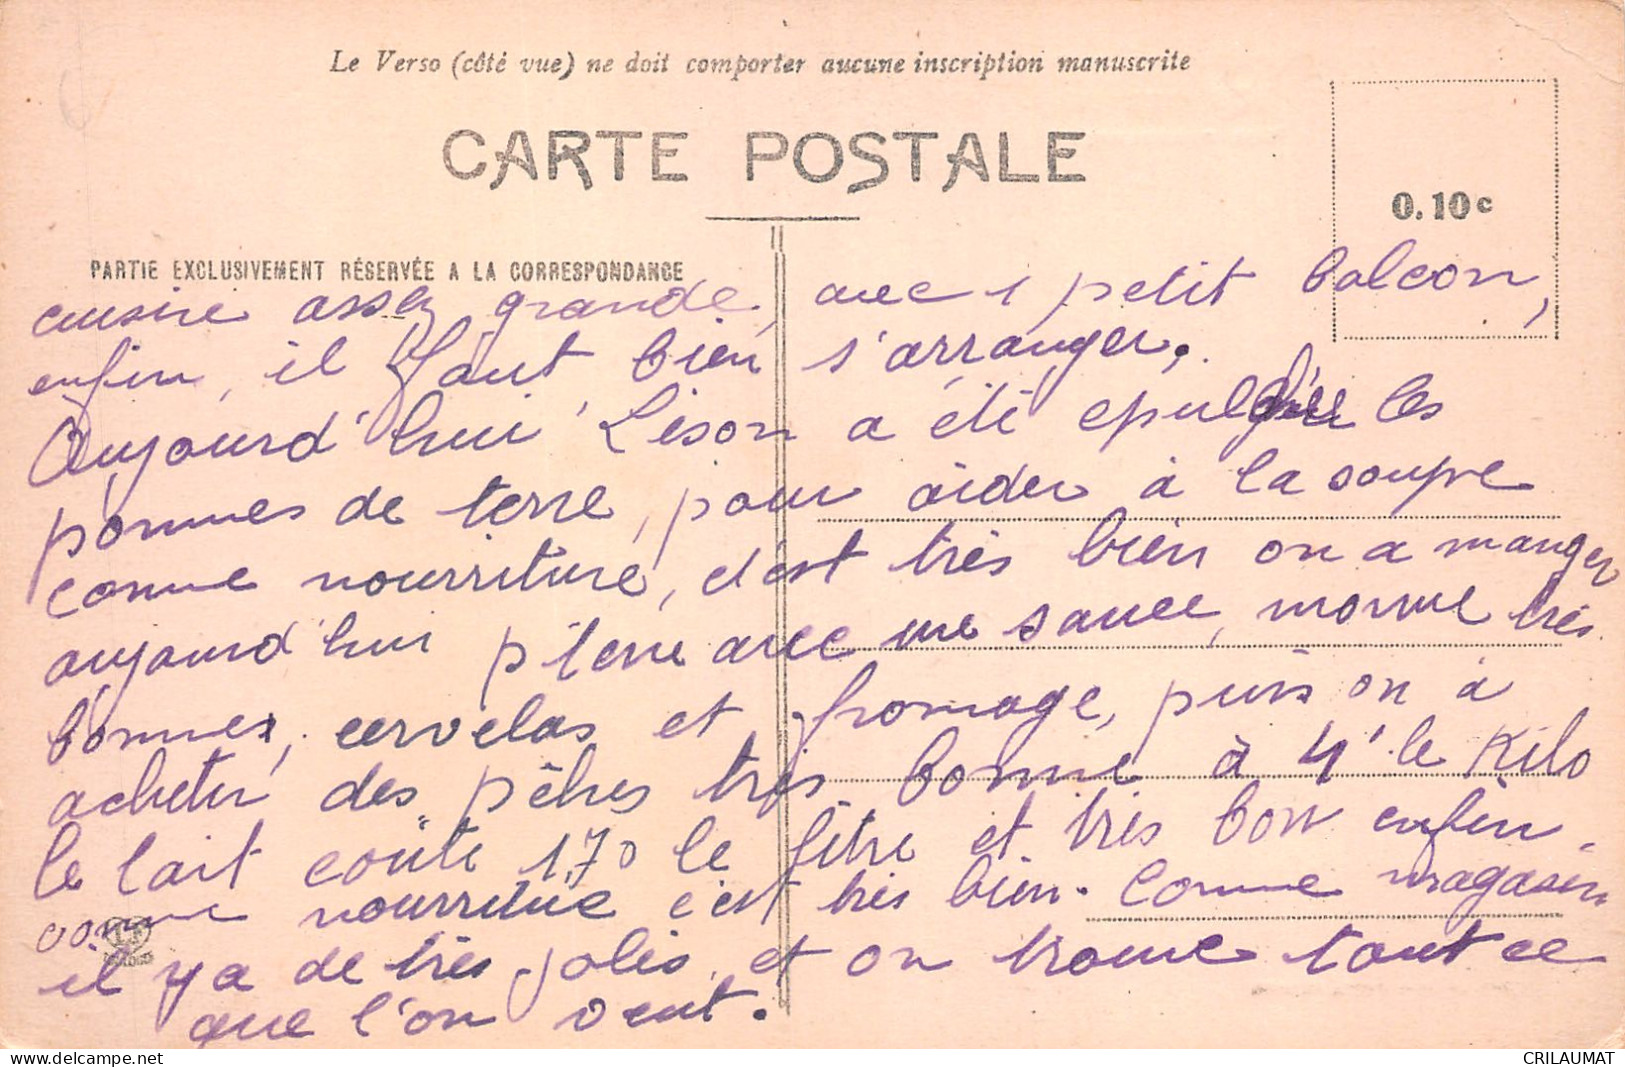 Le Verso (côté vue) ne doit comporter aucune inscription manuscrite
CARTE POSTALE
0.10c
PARTIE EXCLUSIVEMENT RÉSERVÉE A LA CORRESPONDANCE
cuisine assez grande, avec 1 petit balcon,
enfin, il faut bien s'arranger.
Aujourd'hui Lison a été les
pommes de terre, pour aider à la soupe
comme nourriture, c'est très bien on a manger
aujourd'hui p terre avec une sauce, morue très
bonnes, cervelas et fromage, puis on à
acheter des pêhes très bonne à 4' le Kilo
le lait coûte 1,70 le litre et très bon enfin
comme nourriture c'est très bien. Comme magasin
il y a de très jolis, et on trouve tout ce
que l'on veut.
CRILAUMAT